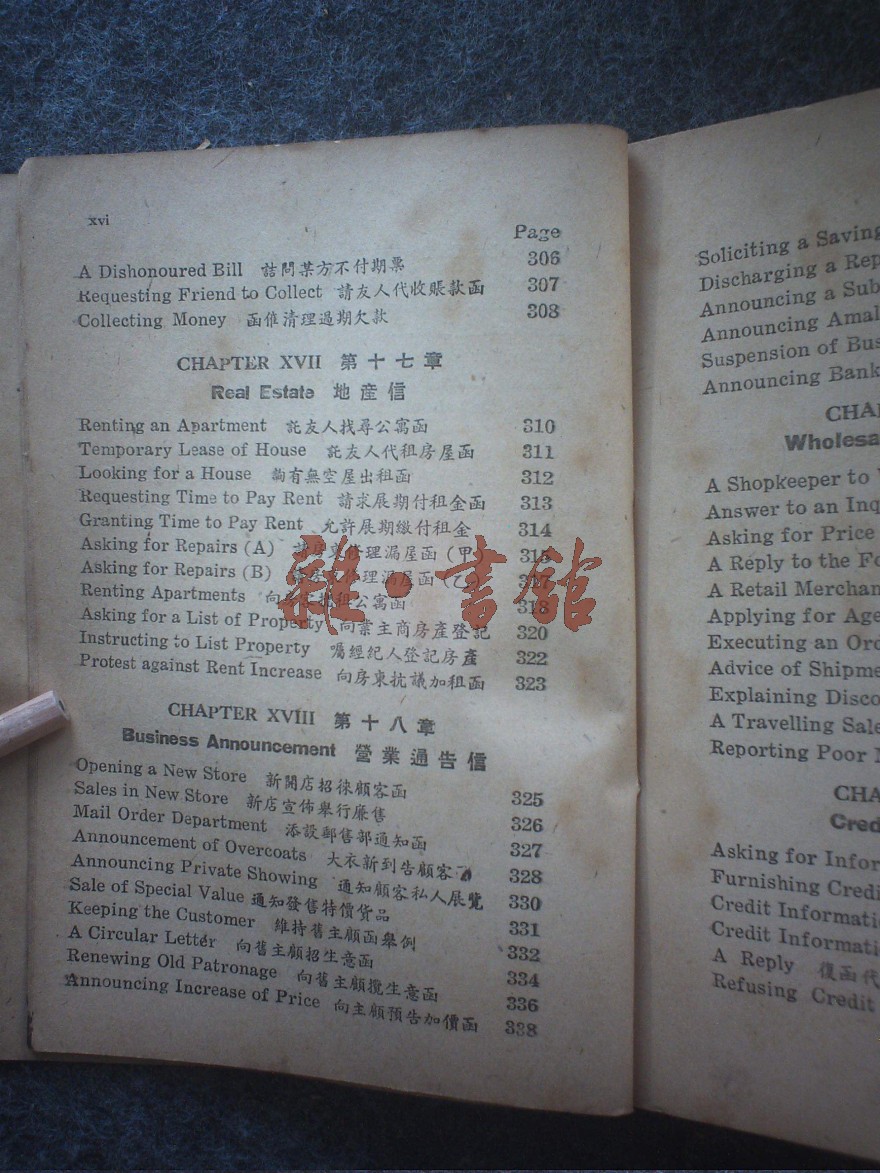 xvi
Page
A Dishonoured Bill 詰問某方不付期票 306
Requesting Friend to Collect 請友人代收賬款函 307
Collecting Money 函催清理過期欠款 308
CHAPTER XVII 第十七章
Real Estate 地產信
Renting an Apartment 託友人找尋公寓函 310
Temporary Lease of House 託友人代租房屋函 311
Looking for a House 詢有無空屋出租函 312
Requesting Time to Pay Rent 請求展期付租金函 313
Granting Time to Pay Rent 允許展期繳付租金 314
Asking for Repairs (A) 房東修理漏屋函(甲) 315
Asking for Repairs (B) 修理漏屋函(乙)
Renting Apartments 向租公寓函 318
Asking for a List of Property 向業主商房產登記 320
Instructing to List Property 囑經紀人登記房產 322
Protest against Rent Increase 向房東抗議加租函 323
雜·書館
CHAPTER XVIII 第十八章
Business Announcement 營業通告信
Opening a New Store 新開店招徠顧客函 325
Sales in New Store 新店宣佈舉行廉售 326
Mail Order Department 添設郵售部通知函 327
Announcement of Overcoats 大衣新到告顧客 328
Announcing Private Showing 通知顧客私人展覽 330
Sale of Special Value 通知發售特價貨品 331
Keeping the Customer 維持舊主顧函舉例 332
A Circular Letter 向舊主顧招生意函 334
Renewing Old Patronage 向舊主顧攬生意函 336
Announcing Increase of Price 向主顧預告加價函 338
Soliciting a Saving
Discharging a Rep
Announcing a Sub
Announcing Amal
Suspension of Bus
Announcing Bank
CHA
Wholesa
A Shopkeeper to
Answer to an Inq
Asking for Price
A Reply to the Fo
A Retail Merchan
Applying for Age
Executing an Ord
Advice of Shipme
Explaining Disco
A Travelling Sale
Reporting Poor
CHA
Cred
Asking for Infor
Furnishing Credi
Credit Informati
Credit Informati
A Reply 復函代
Refusing Credit